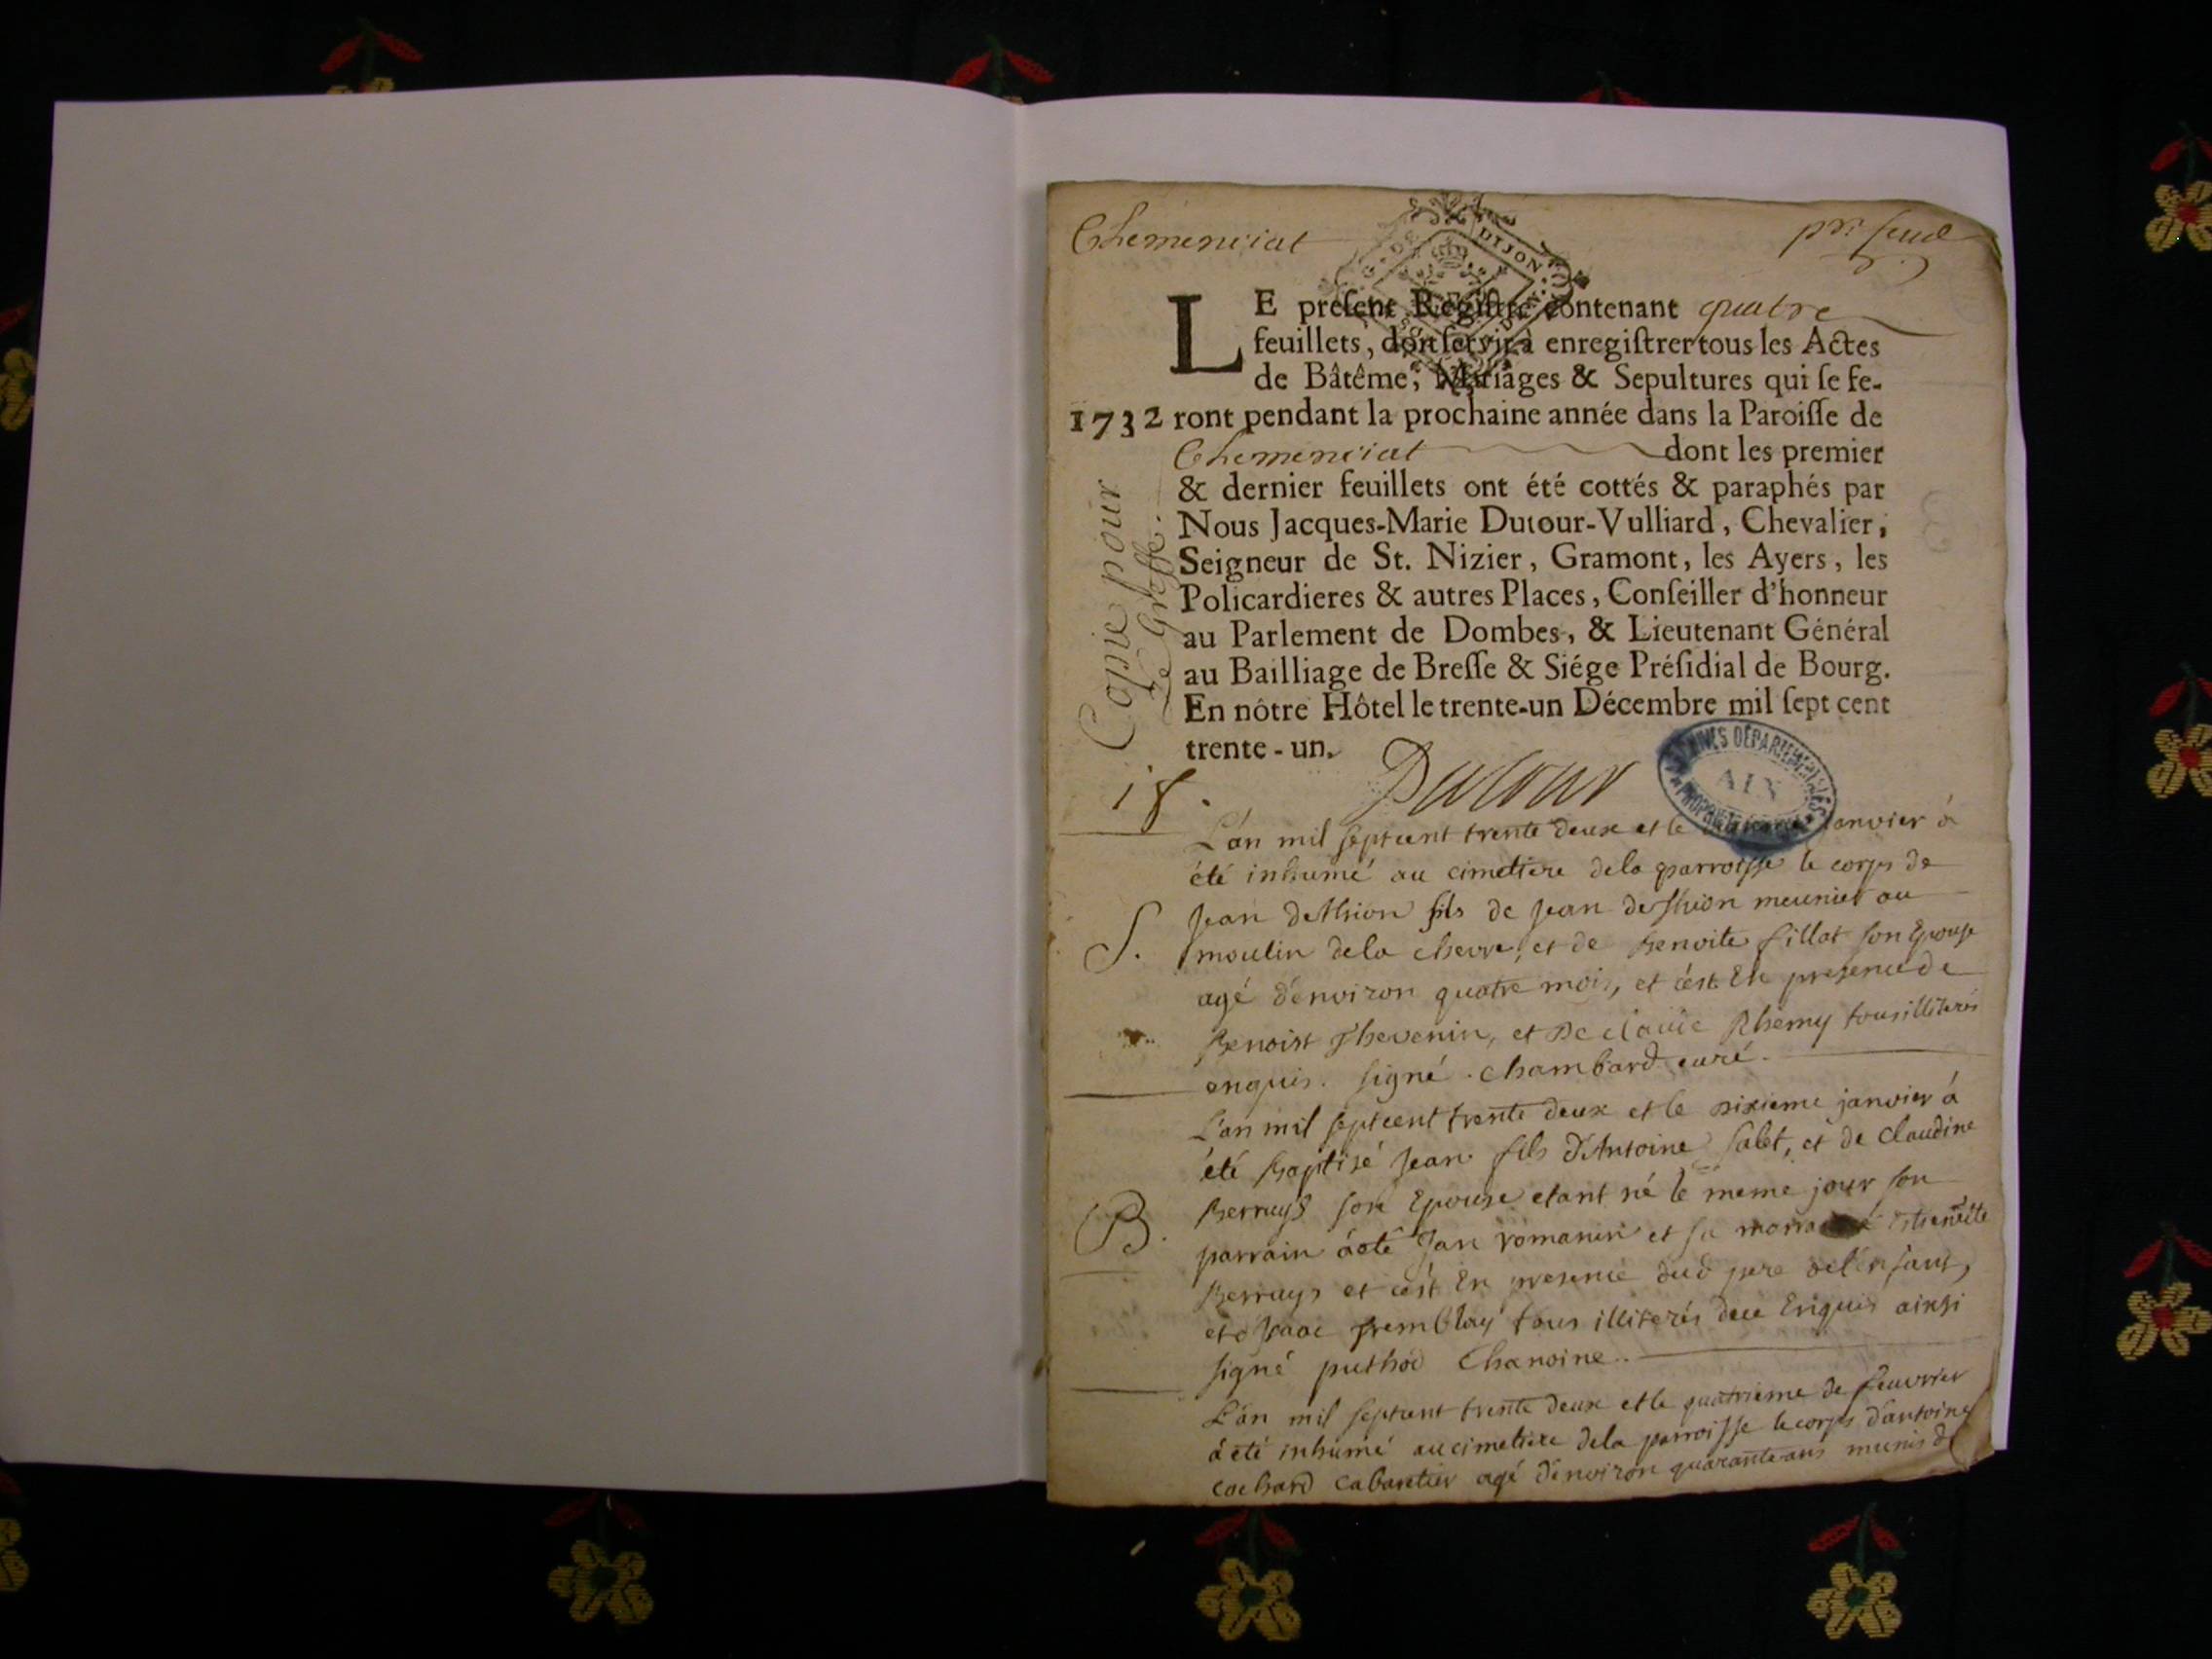 Chemenciat
pr. feuil
DIJON
LE preſent Regiſtre contenant quatre
feuillets, don ſervira enregiſtrer tous les Actes
de Bâtême, Mariages & Sepultures qui ſe fe-
1732 ront pendant la prochaine année dans la Paroiſſe de
Chemenciat dont les premier
& dernier feuillets ont été cottés & paraphés par
Nous Jacques-Marie Dutour-Vulliard, Chevalier,
Seigneur de St. Nizier, Gramont, les Ayers, les
Policardieres & autres Places, Conſeiller d'honneur
au Parlement de Dombes, & Lieutenant Général
au Bailliage de Breſſe & Siége Préſidial de Bourg.
En nôtre Hôtel le trente-un Décembre mil ſept cent
trente-un.
Copie pour
Le Greffe.
18.
Dutour
ARCHIVES DÉPARTEMENTALES
AIN
PROPRIÉTÉ
L'an mil septcent trente deux et le janvier à
été inhumé au cimetiere dela parroisse le corps de
S. Jean fils de Jean meunier au
moulin dela chevre, et de Benoite fillat son Epouse
agé d'environ quatre mois, et c'est En presence de
Benoist Thevenin, et De claude Rhemy tous illiterés
enquis. signé. chambard curé.
L'an mil septcent trente deux et le sixieme janvier à
été Baptisé Jean fils d'Antoine Salet, et de Claudine
B. Berruys son Epouse etant né le meme jour son
parrain àeté Jan romanin et sa
Berruys et c'est En presence dud pere del'enfant,
et d'Isaac tremblay tous illiterés deue Enquis ainsi
signé puthod Chanoine.
L'an mil septcent trente deux et le quatrieme de feuvrier
à eté inhumé au cimetiere dela parroisse le corps d'antoine
cochard cabaretier agé d'environ quarante ans munis